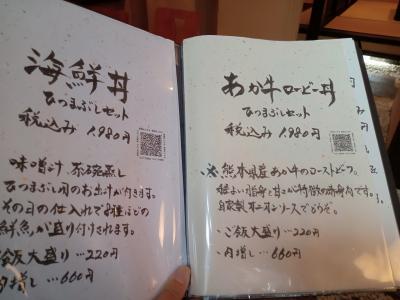 海鮮丼
ひつまぶしセット
税込み 1,980円
味噌汁、茶碗蒸し
ひつまぶし用のお出汁が付きます。
その日の仕入れで8種ほどの
鮮魚が盛り付けされます。
ご飯大盛り…220円
肉増し…660円
あか牛ロービー丼
ひつまぶしセット
税込み 1,980円
熊本県産あか牛のローストビーフ。
程よい脂身と甘さが特徴の赤身肉です。
自家製オニオンソースでどうぞ。
・ご飯大盛り…220円
・肉増し…660円